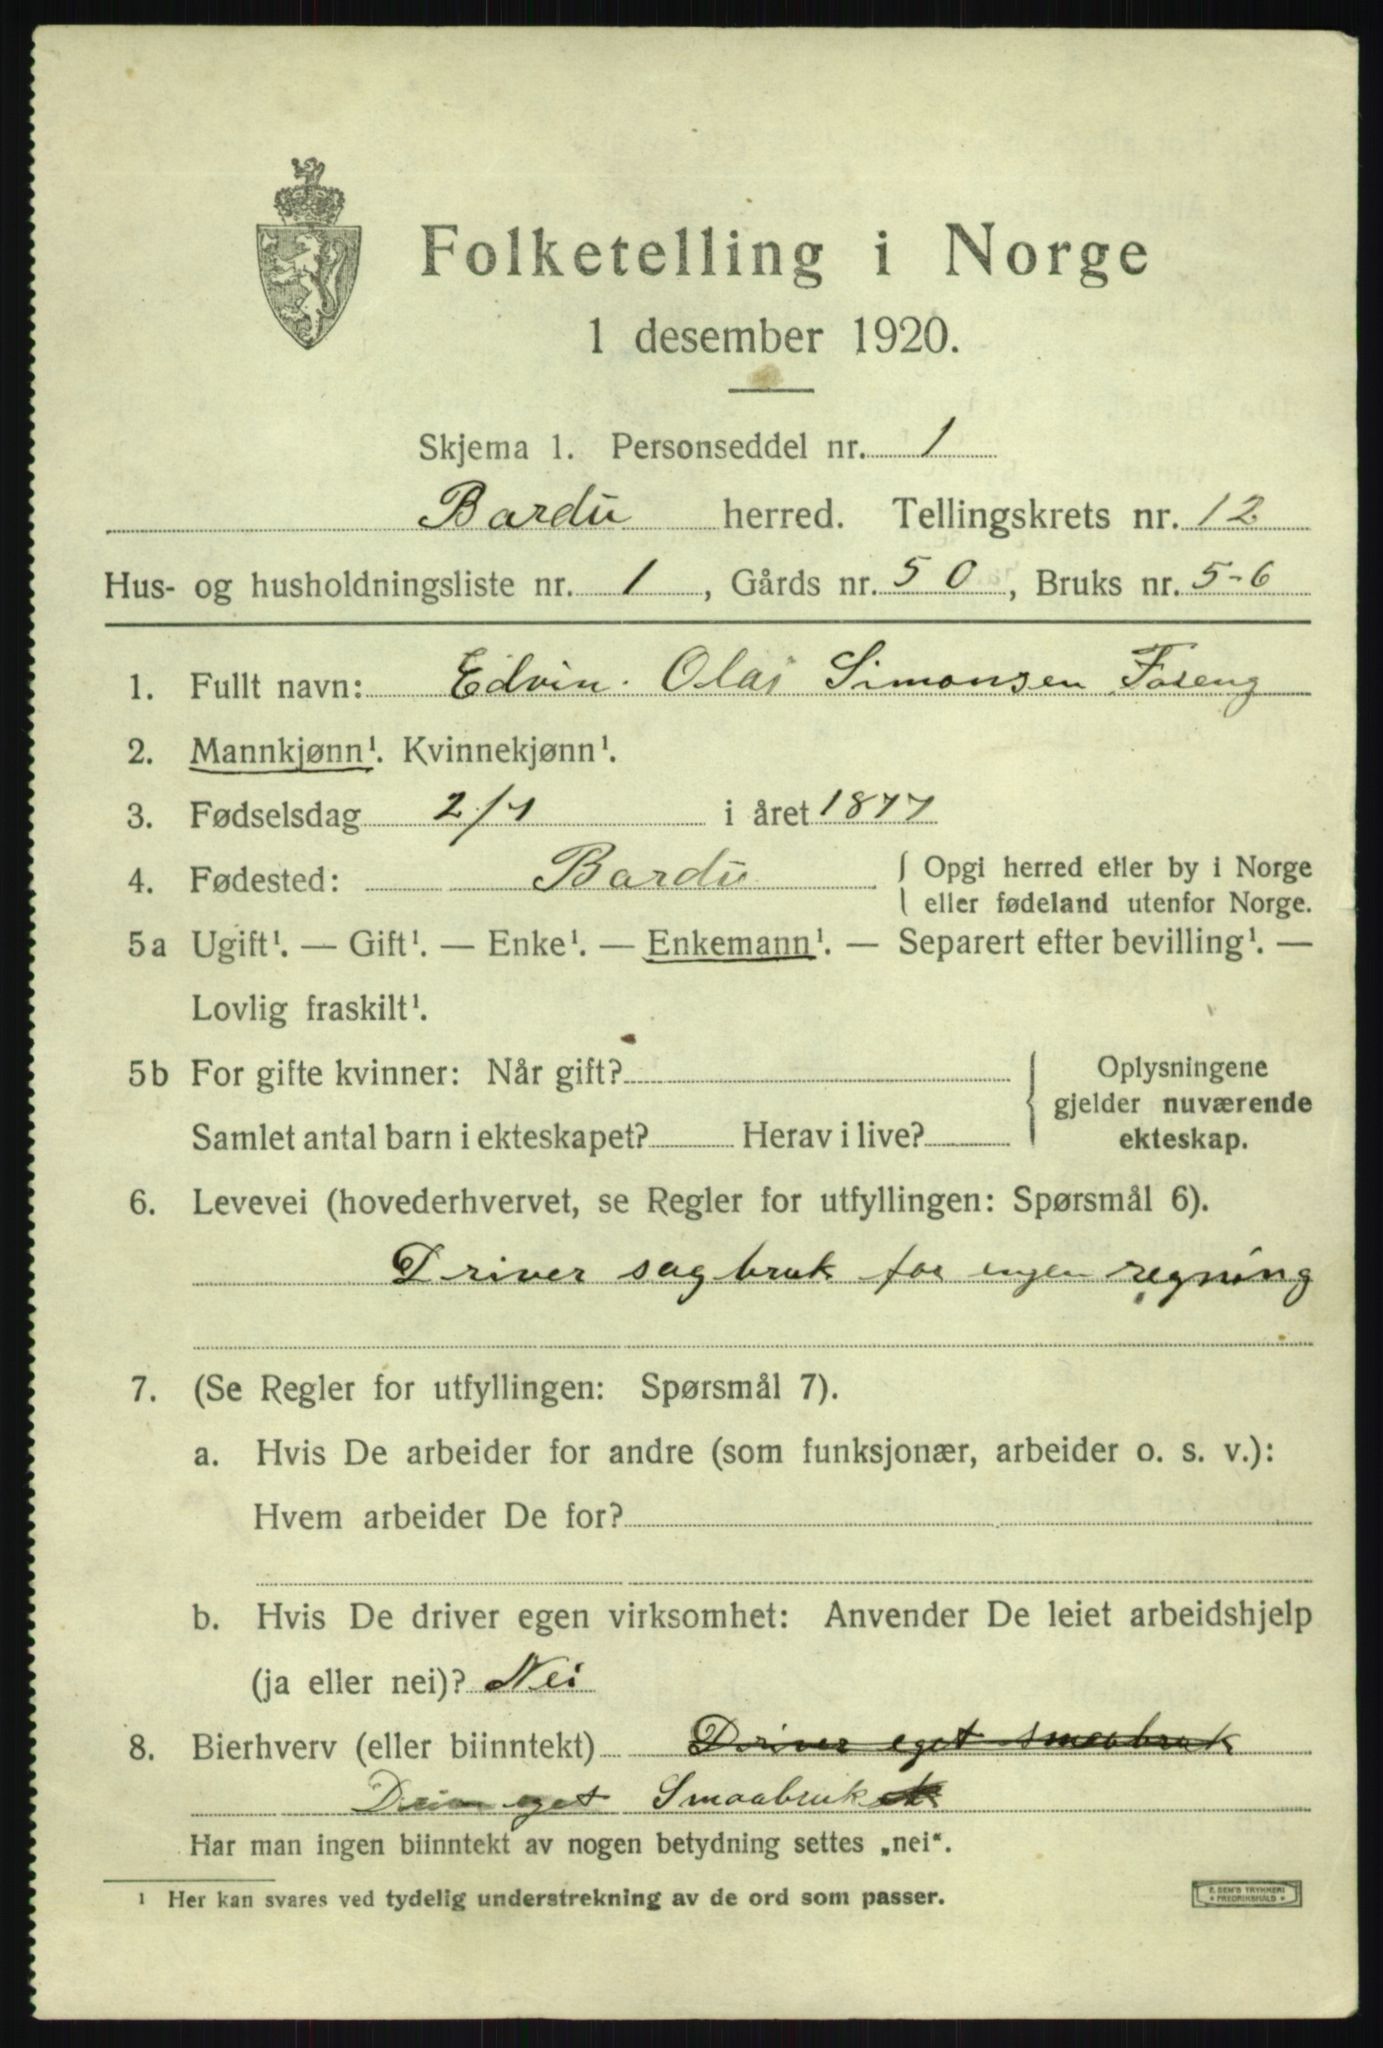 Folketelling i Norge
1 desember 1920.
Skjema 1. Personseddel nr. 1
Bardu herred. Tellingskrets nr. 12
Hus- og husholdningsliste nr. 1, Gårds nr. 50, Bruks nr. 5-6
1. Fullt navn: Edvin Olai Simonsen Foseng
2. Mannkjønn¹. Kvinnekjønn¹.
3. Fødselsdag 2/1 i året 1877
4. Fødested: Bardu { Opgi herred eller by i Norge
eller fødeland utenfor Norge.
5a Ugift¹. — Gift¹. — Enke¹. — Enkemann¹. — Separert efter bevilling¹. —
Lovlig fraskilt¹.
5b For gifte kvinner: Når gift? { Oplysningene
gjelder nuværende
Samlet antal barn i ekteskapet? Herav i live? ekteskap.
6. Levevei (hovederhvervet, se Regler for utfyllingen: Spørsmål 6).
Driver sagbruk for egen regning
7. (Se Regler for utfyllingen: Spørsmål 7).
a. Hvis De arbeider for andre (som funksjonær, arbeider o. s. v.):
Hvem arbeider De for?
b. Hvis De driver egen virksomhet: Anvender De leiet arbeidshjelp
(ja eller nei)? Nei
8. Bierhverv (eller biinntekt) Driver eget smaabruk
Driver eget Smaabruk
Har man ingen biinntekt av nogen betydning settes „nei“.
¹ Her kan svares ved tydelig understrekning av de ord som passer.
E. SEM'S TRYKKERI
* FREDRIKSHALD *